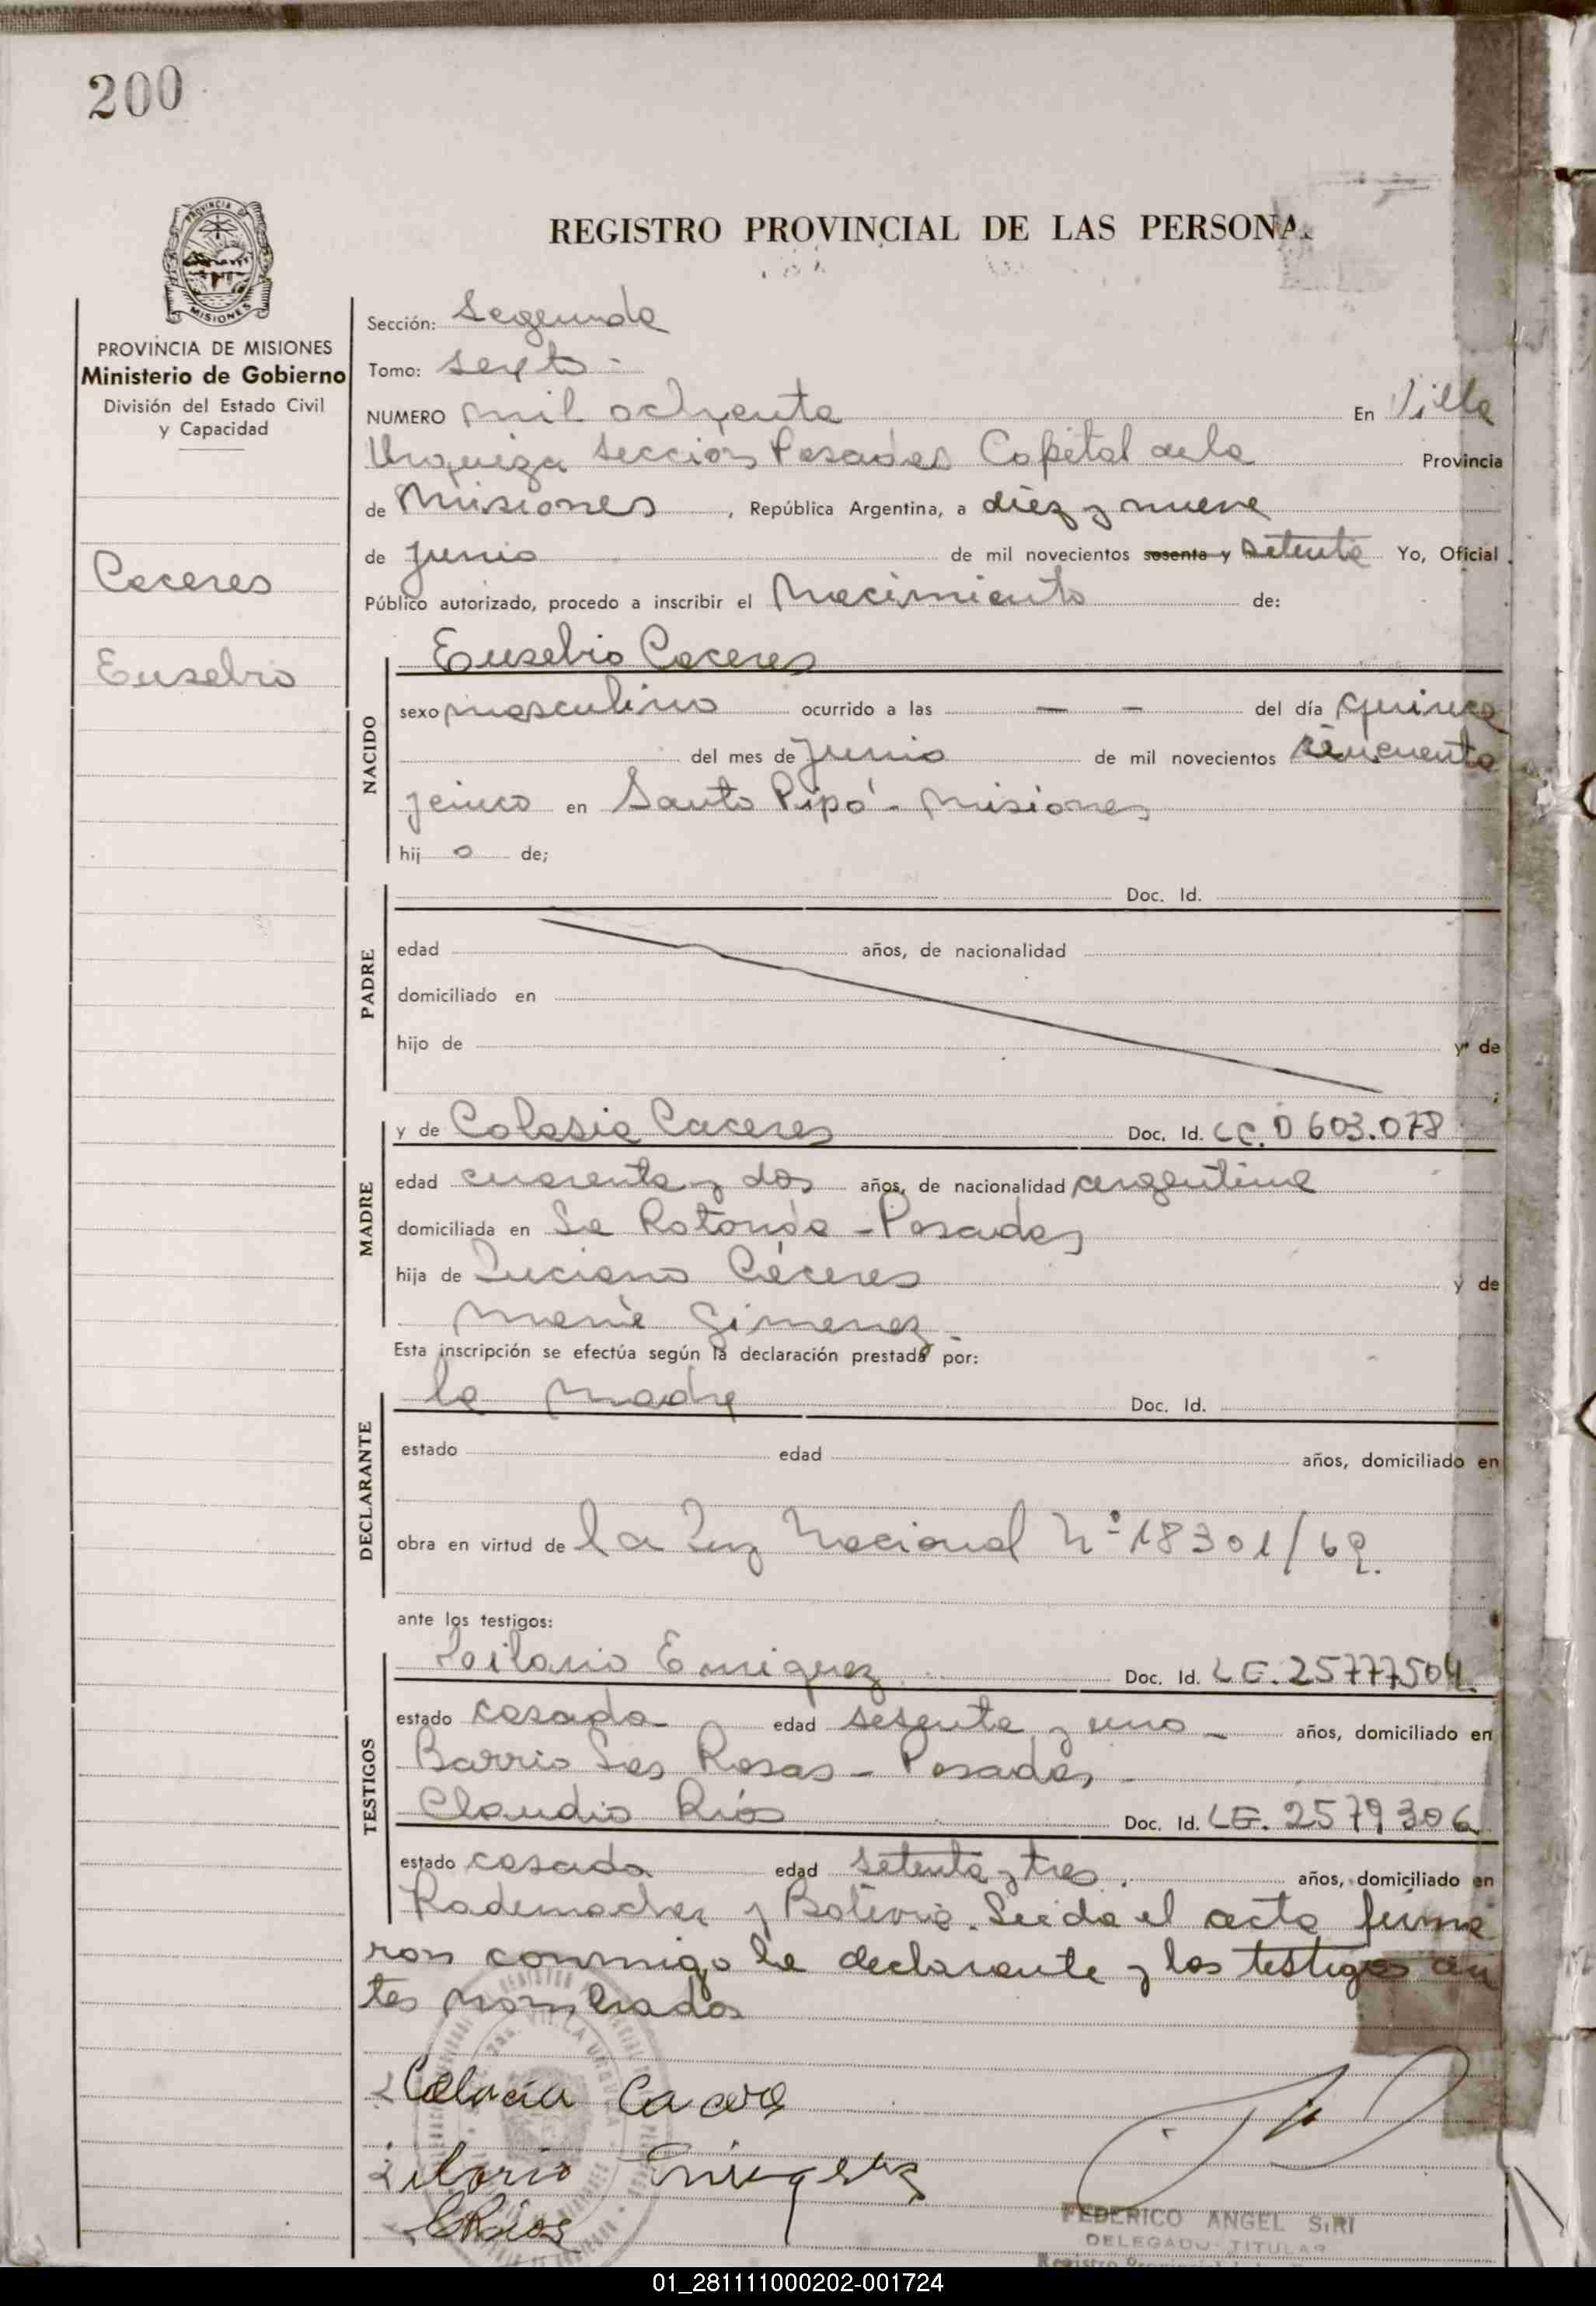 200
REGISTRO PROVINCIAL DE LAS PERSONA
PROVINCIA DE
MISIONES
PROVINCIA DE MISIONES
Ministerio de Gobierno
División del Estado Civil
y Capacidad
Caceres
Eusebio
Sección: Segunda
Tomo: sexto -
NUMERO mil ochenta En Villa
Urquiza sección Posadas Capital de la Provincia
de Misiones, República Argentina, a diez y nueve
de junio de mil novecientos sesenta y setenta Yo, Oficial
Público autorizado, procedo a inscribir el Nacimiento de:
NACIDO
Eusebio Caceres
sexo masculino ocurrido a las — — del día quince
del mes de junio de mil novecientos cincuenta
y cinco en Santo Pipó - Misiones
hij o de;
PADRE
Doc. Id.
edad años, de nacionalidad
domiciliado en
hijo de y de
;
MADRE
y de Colasia Caceres Doc. Id. LC. 0603.078
edad cuarenta y dos años, de nacionalidad argentina
domiciliada en La Rotonda - Posadas
hija de Luciano Cáceres y de
María Gimenez -
Esta inscripción se efectúa según la declaración prestada por:
DECLARANTE
la madre Doc. Id.
estado edad años, domiciliado en
obra en virtud de la Ley Nacional Nº 18301/69.
ante los testigos:
TESTIGOS
Hilario Enriquez Doc. Id. LE. 25777504.
estado casado edad sesenta y uno - años, domiciliado en
Barrio Las Rosas - Posadas -
Claudio Ríos Doc. Id. LE. 2579306
estado casado edad setenta y tres. años, domiciliado en
Rademacher y Bolivia. Leida el acta firma
ron conmigo la declarante y los testigos an
tes nombrados
Colacia Cacere
ilario Enriquez
C Rios
FEDERICO ANGEL SIRI
DELEGADO TITULAR
01_281111000202-001724